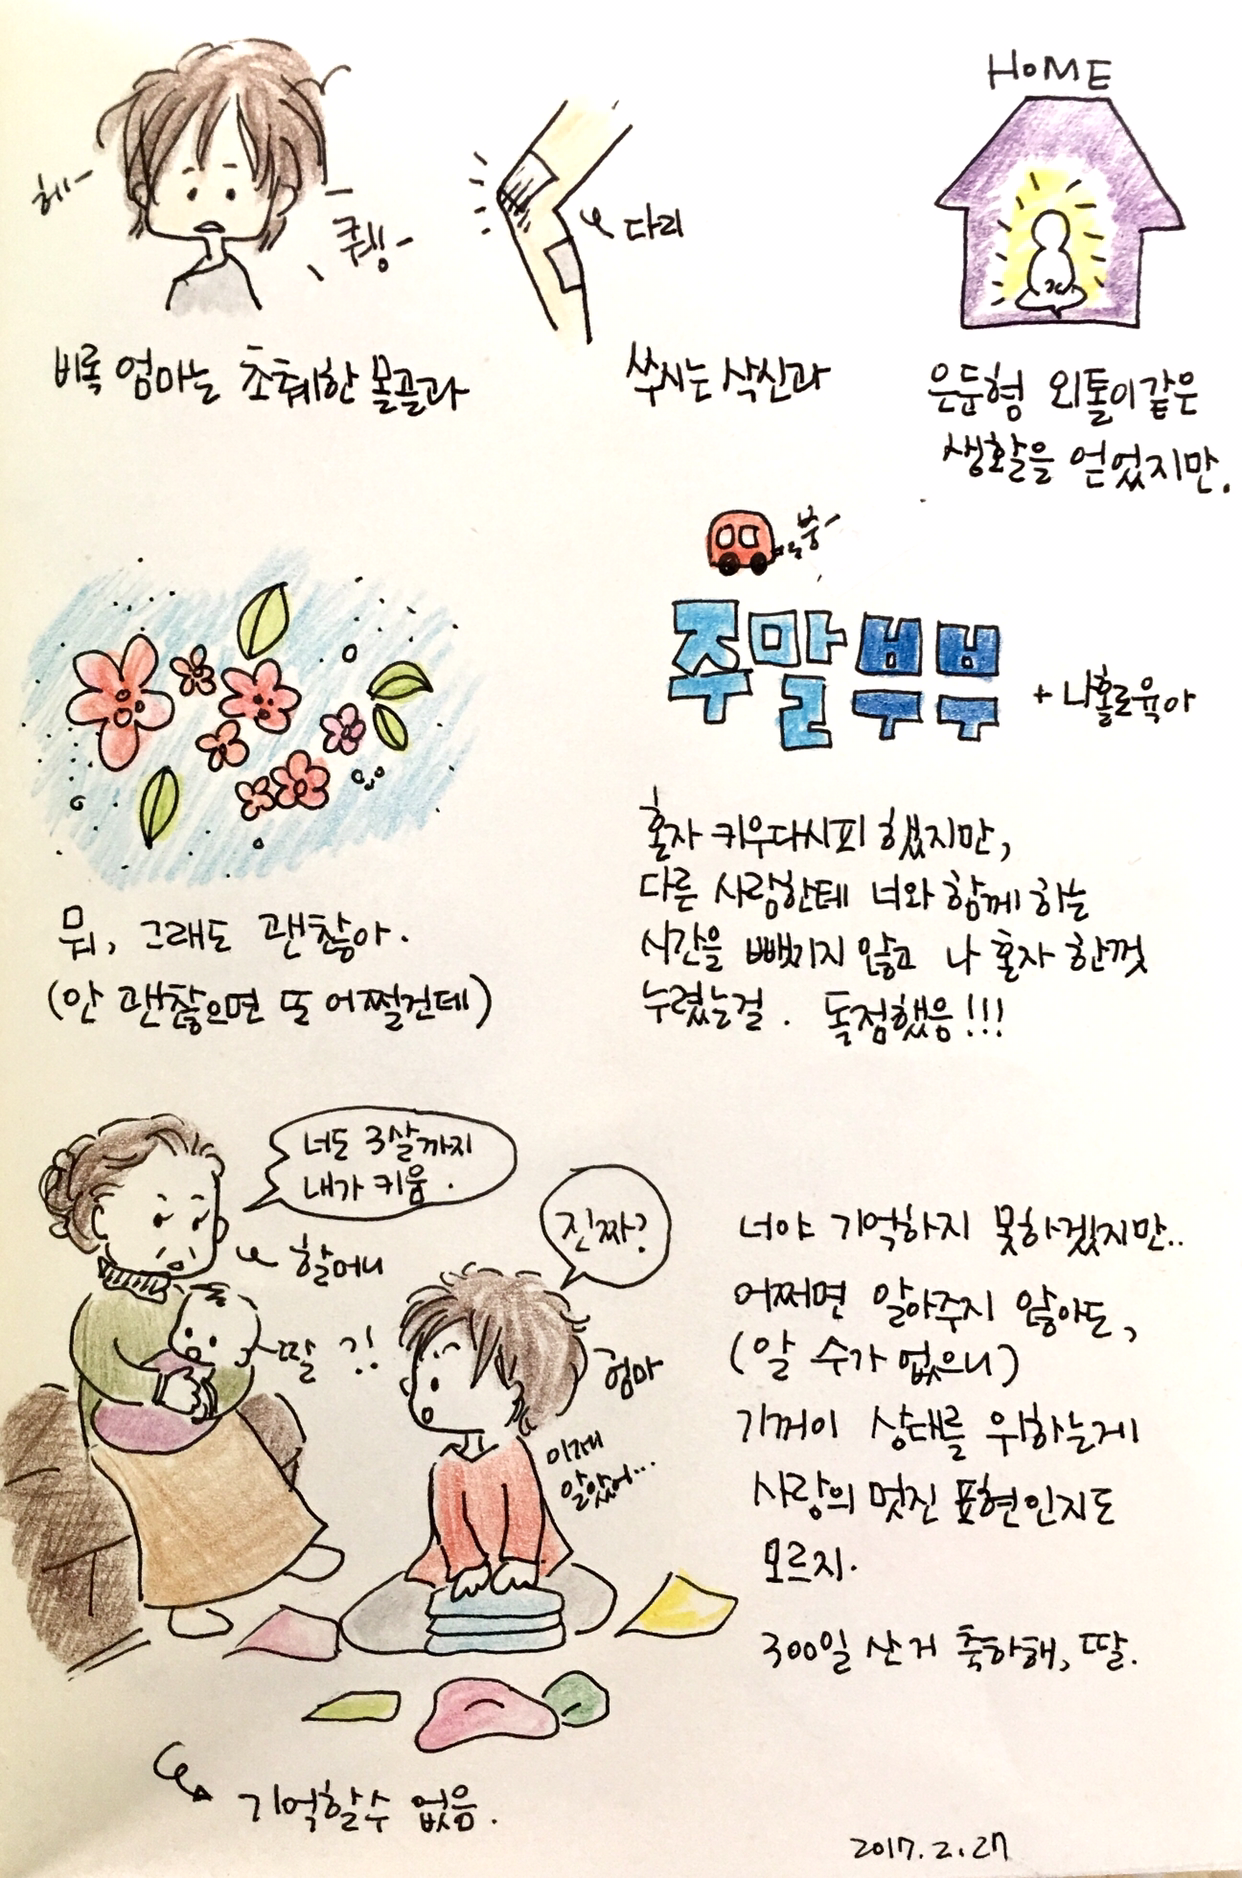 HOME
허-
퀭-
다리
비록 엄마는 초췌한 몰골과
쑤시는 삭신과
은둔형 외톨이같은
생활을 얻었지만.
붕-
주말부부
+ 나홀로육아
뭐, 그래도 괜찮아.
(안 괜찮으면 또 어쩔건데)
혼자 키우다시피 했지만,
다른 사람한테 너와 함께 하는
시간을 뺏기지 않고 나 혼자 한껏
누렸는걸. 독점했음!!!
너도 3살까지
내가 키움.
할머니
진짜?
딸
?!
엄마
이제야
알았어...
너야 기억하지 못하겠지만..
어쩌면 알아주지 않아도,
(알 수가 없으니)
기꺼이 상대를 위하는게
사랑의 멋진 표현인지도
모르지.
300일 산거 축하해, 딸.
기억할수 없음.
2017.2.27